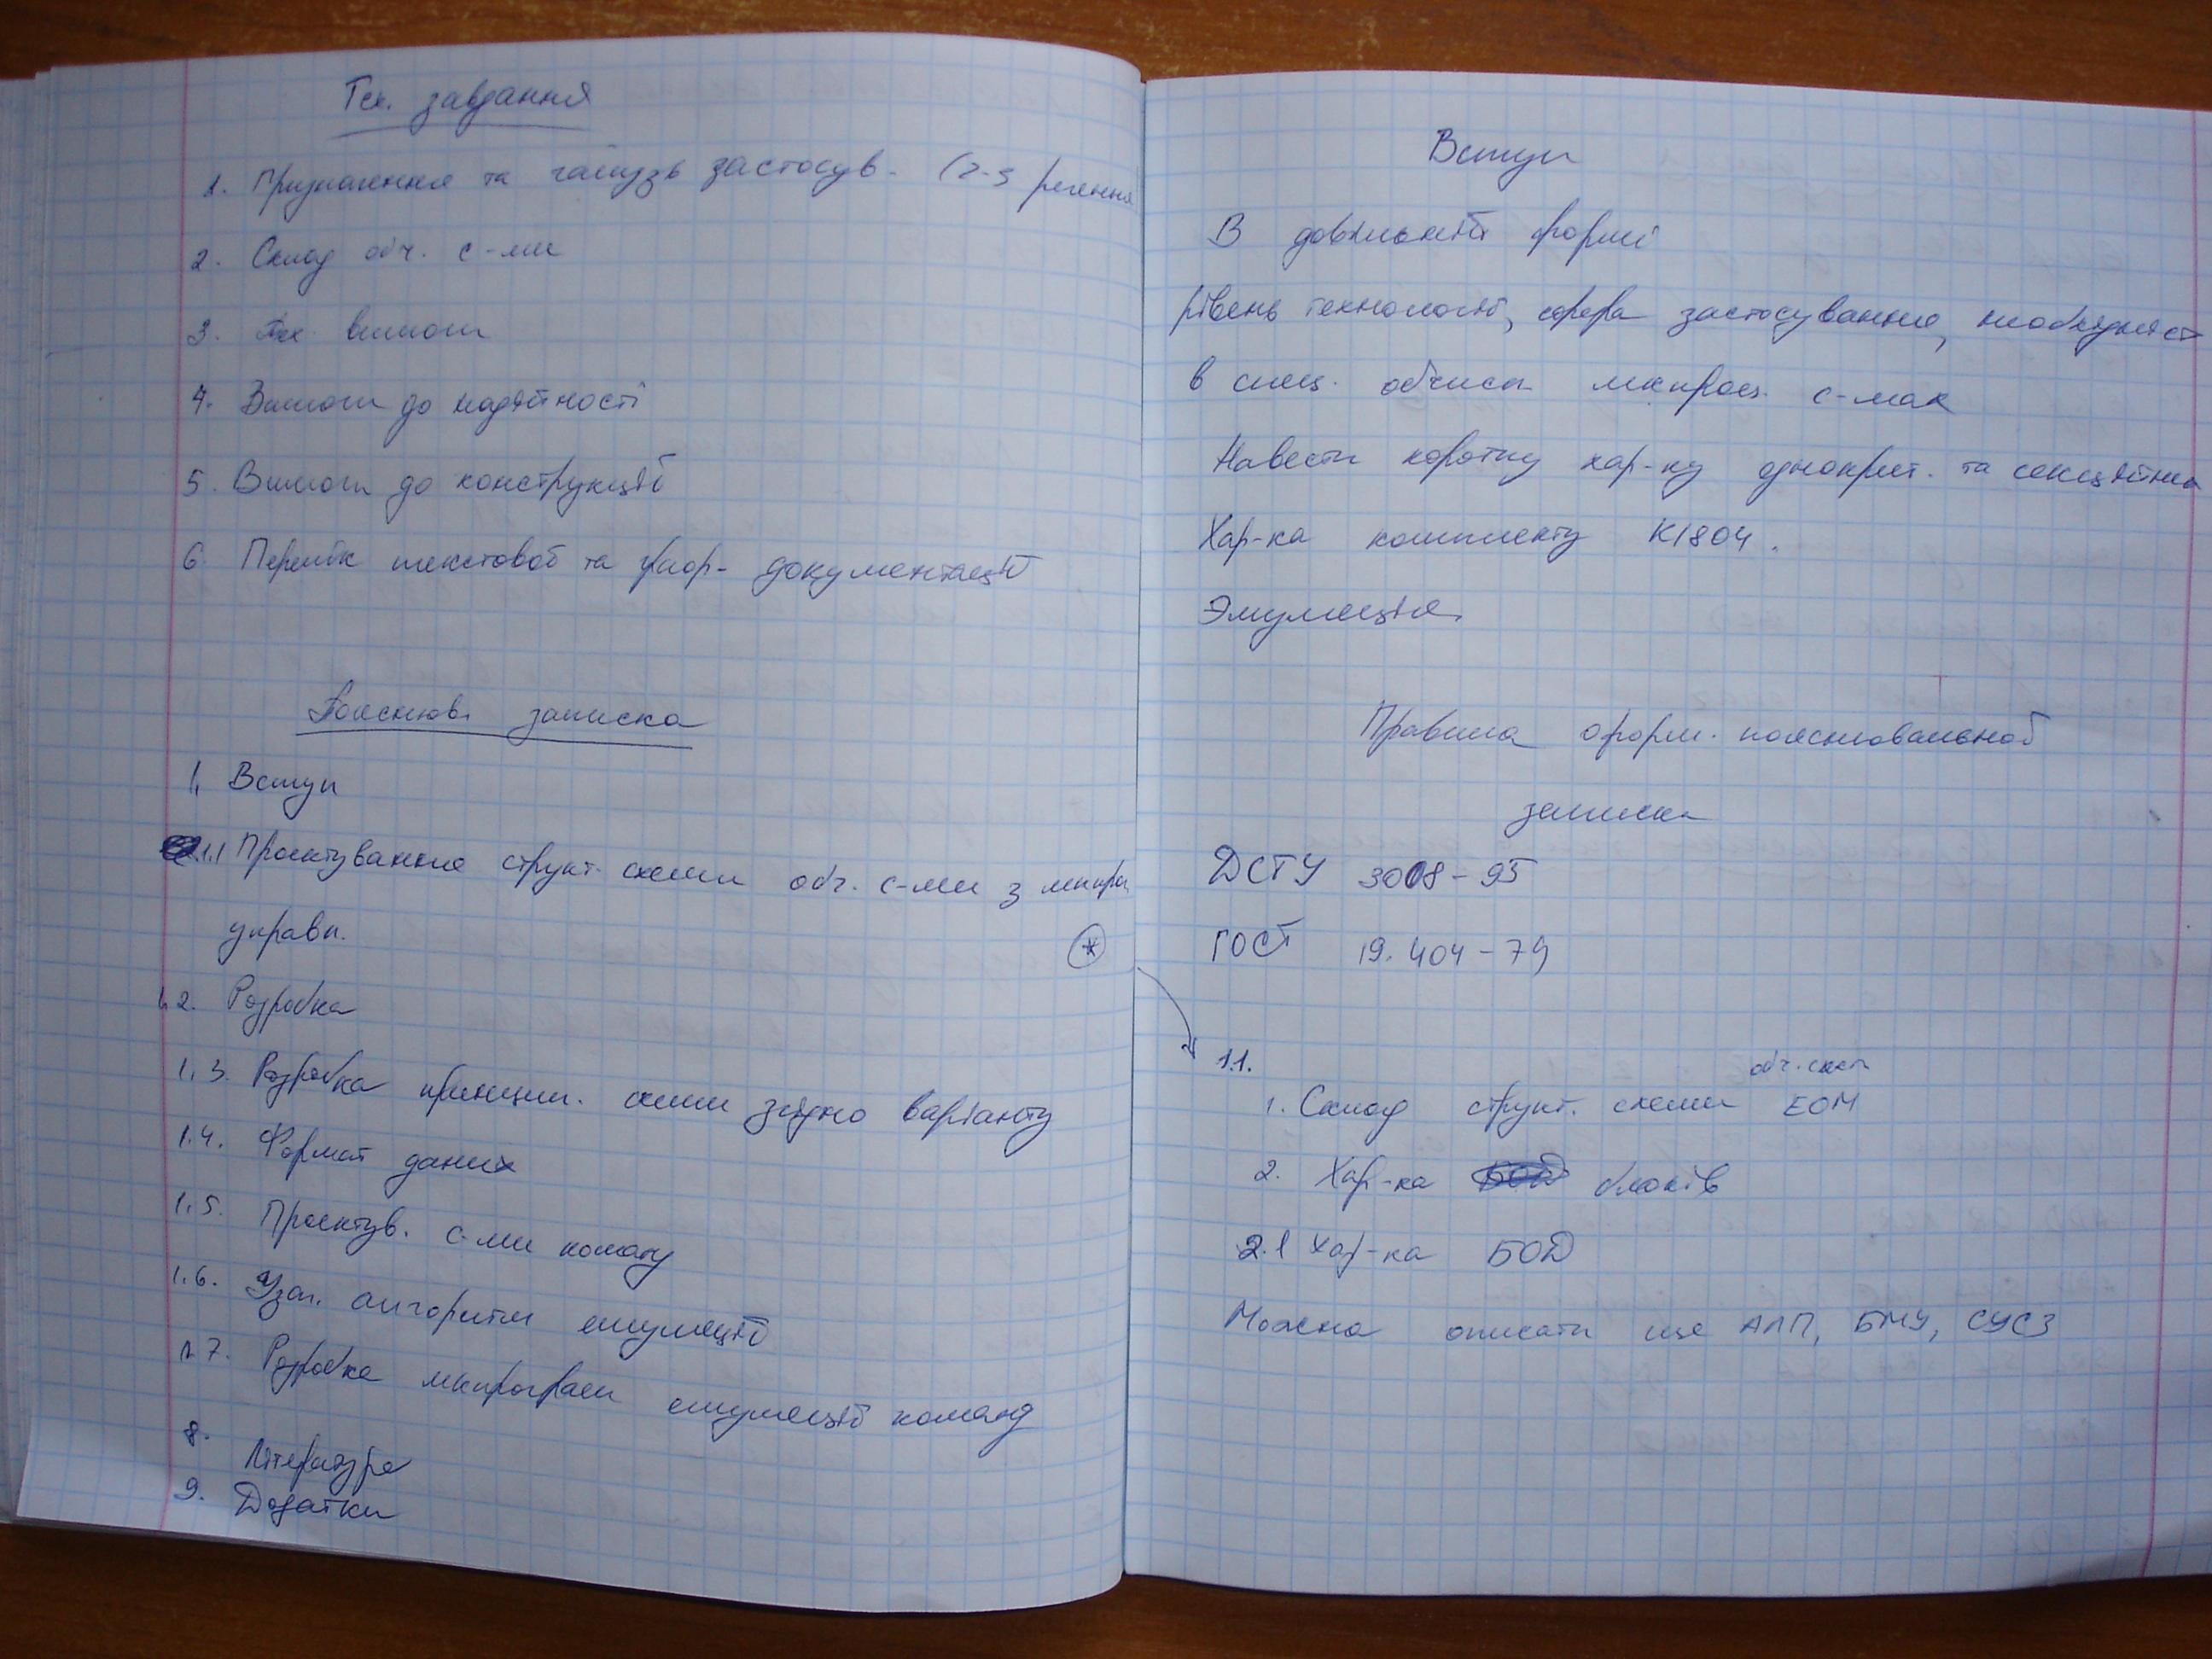 Тех. завдання
1. Призначення та галузь застосув. (2-3 речення
2. Склад обч. с-ми
3. Тех. вимоги
4. Вимоги до надійності
5. Вимоги до конструкції
6. Перелік текстової та граф. документації
Пояснюв. записка
1. Вступ
1.1 Проектування структ. схеми обч. с-ми з мікро
управл.
*
1.2. Розробка
1.3. Розробка принцип. схеми згідно варіанту
1.4. Формат даних
1.5. Проектув. с-ми команд
1.6. Узаг. алгоритм емуляції
1.7. Розробка мікропрограм емуляції команд
8. Література
9. Додатки
Вступ
В довільній формі
рівень технології, сфера застосування, необхідніст
в спец. обчисл мікропроц. с-мах
Навести коротку хар-ку однокрист. та секційних
Хар-ка комплекту К1804.
Эмуляція.
Правила оформ. пояснювальної
записки
ДСТУ 3008-95
ГОСТ 19.404-79
1.1.
обч. сист
1. Склад структ. схеми ЕОМ
2. Хар-ка блоків
2.1 Хар-ка БОД
Можна описати ще АЛП, БМУ, СУСЗ